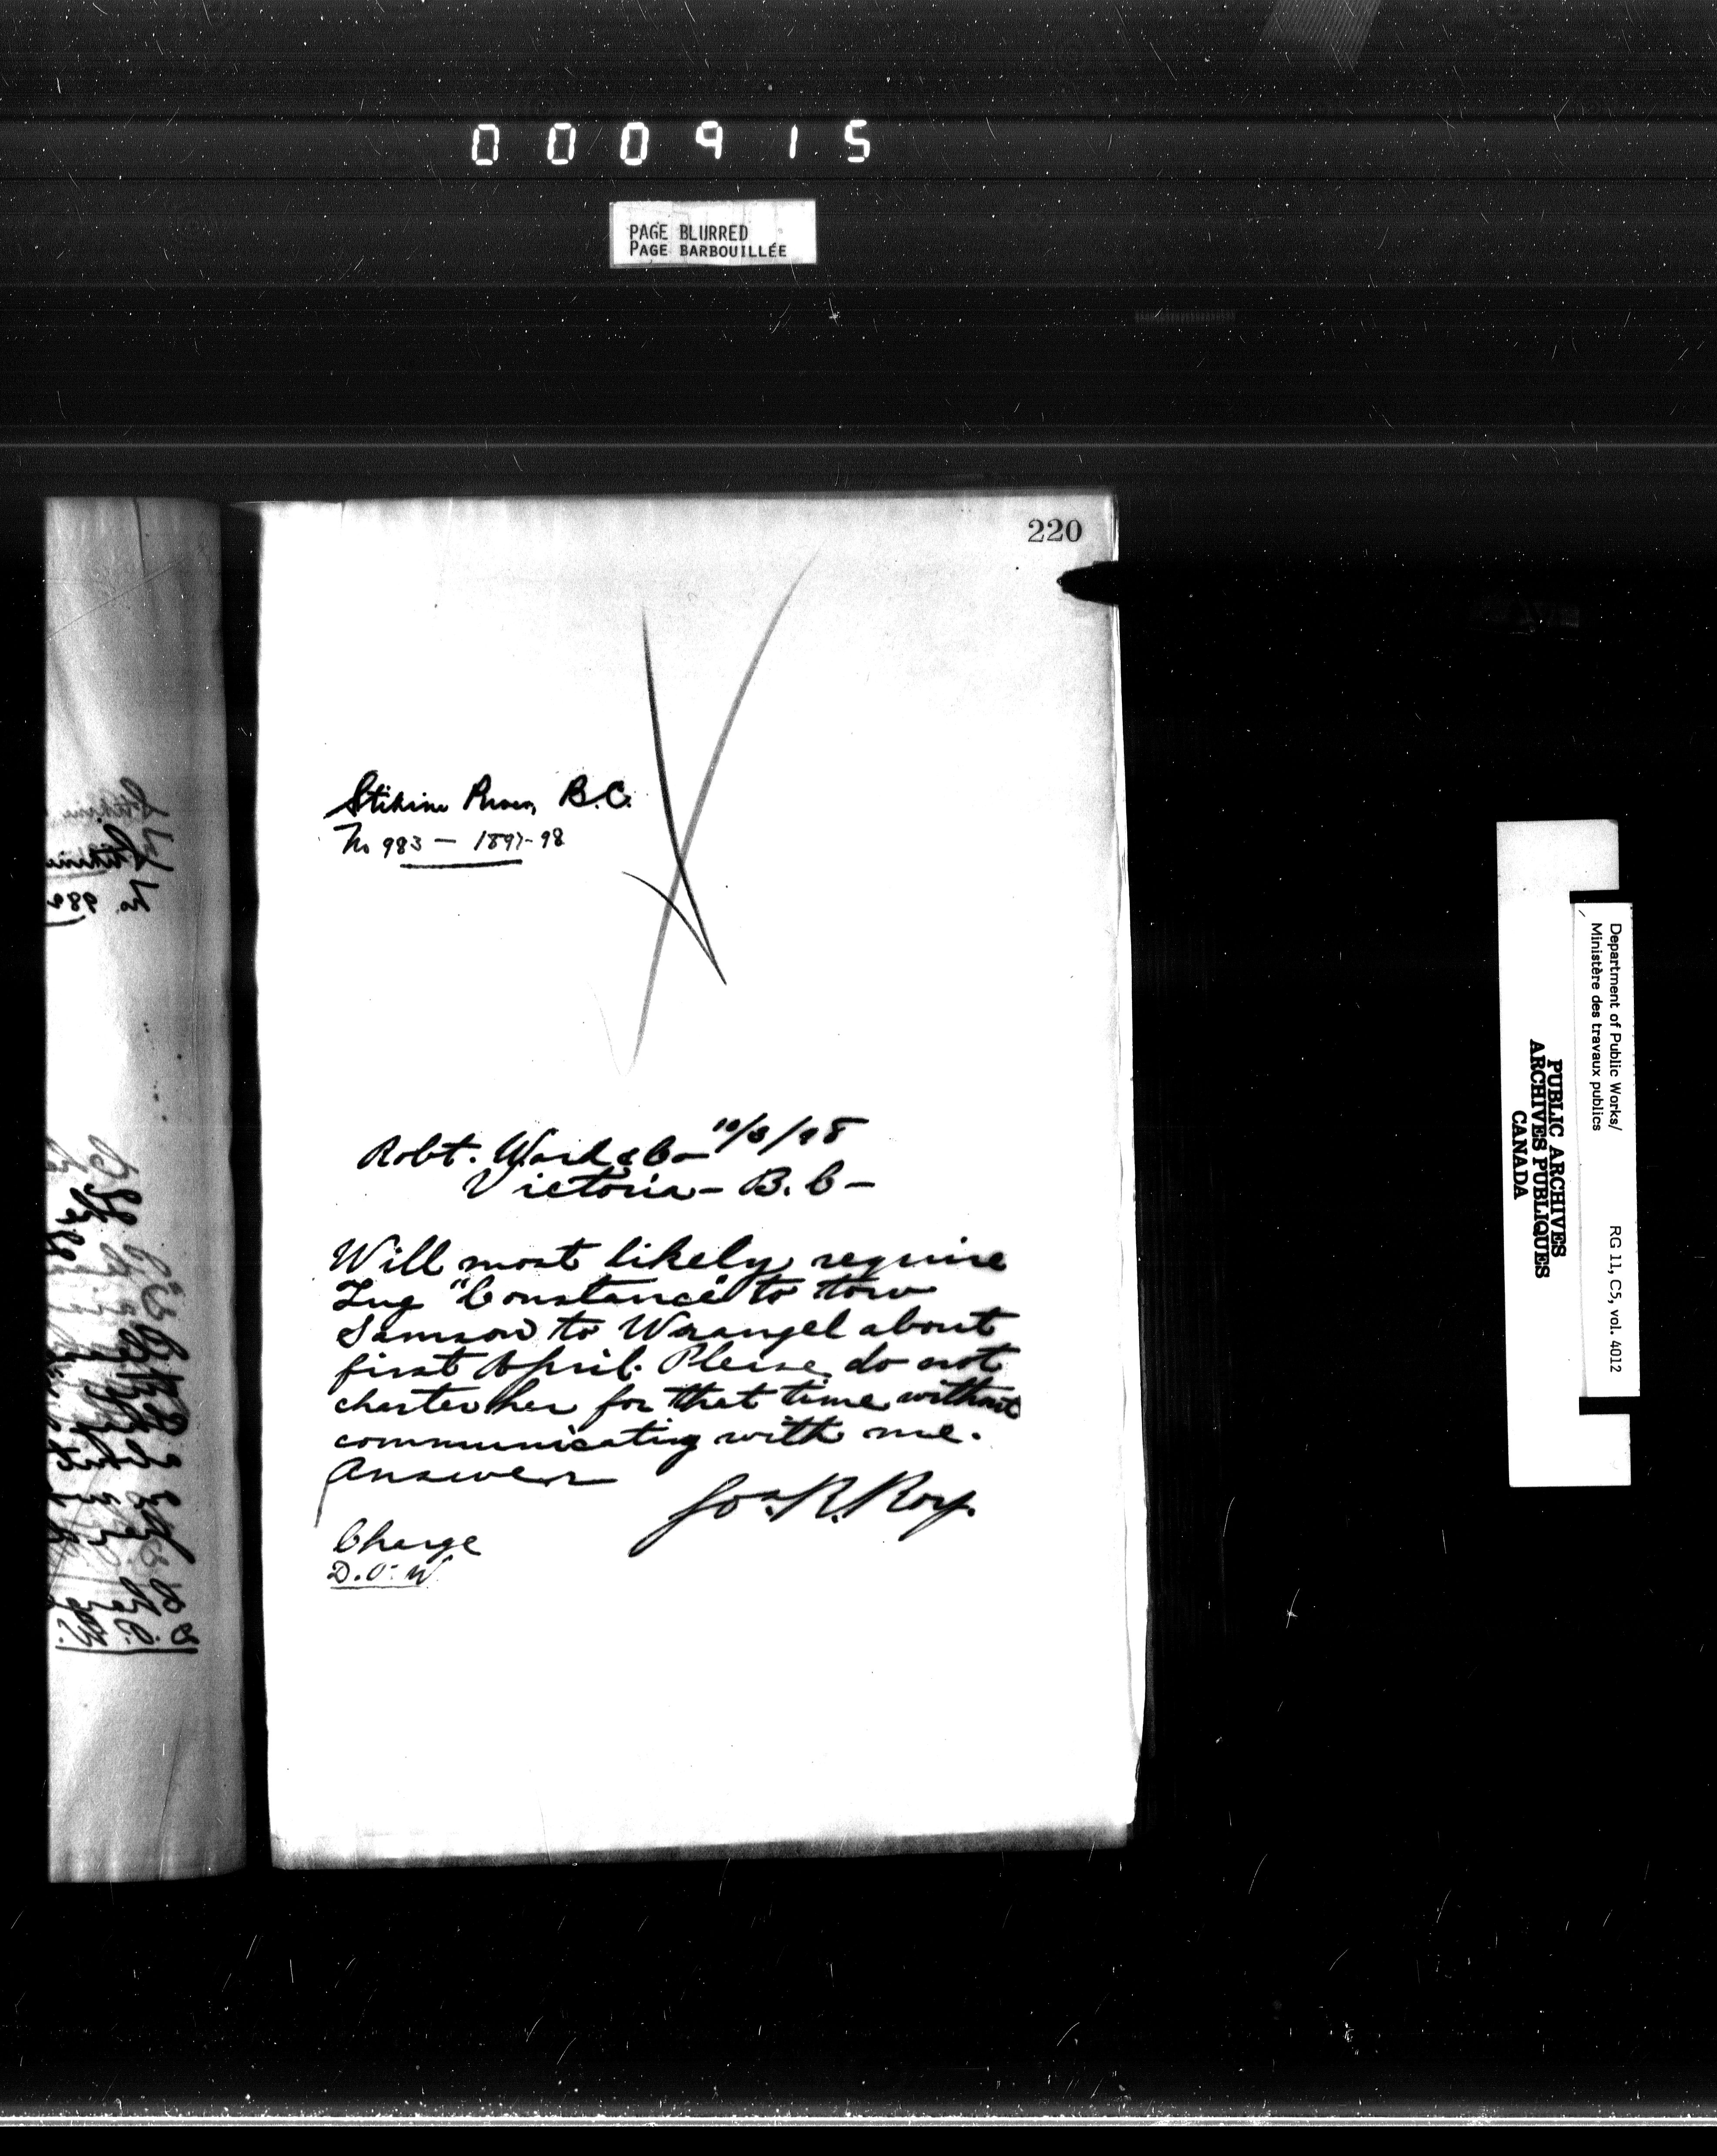 000915
PAGE BLURRED
PAGE BARBOUILLÉE
220
Stikine River, B.C.
No 983 — 1897-98
10/3/98
Robt. Ward & Co—
Victoria — B.C —
Will most likely require
Tug "Constance" to tow
Samson to Wrangel about
first April. Please do not
charter her for that time without
communicating with me.
Answer
Jos. R. Roy.
Charge
D.O.W
Department of Public Works/
Ministère des travaux publics
RG 11, C5, vol. 4012
PUBLIC ARCHIVES
ARCHIVES PUBLIQUES
CANADA